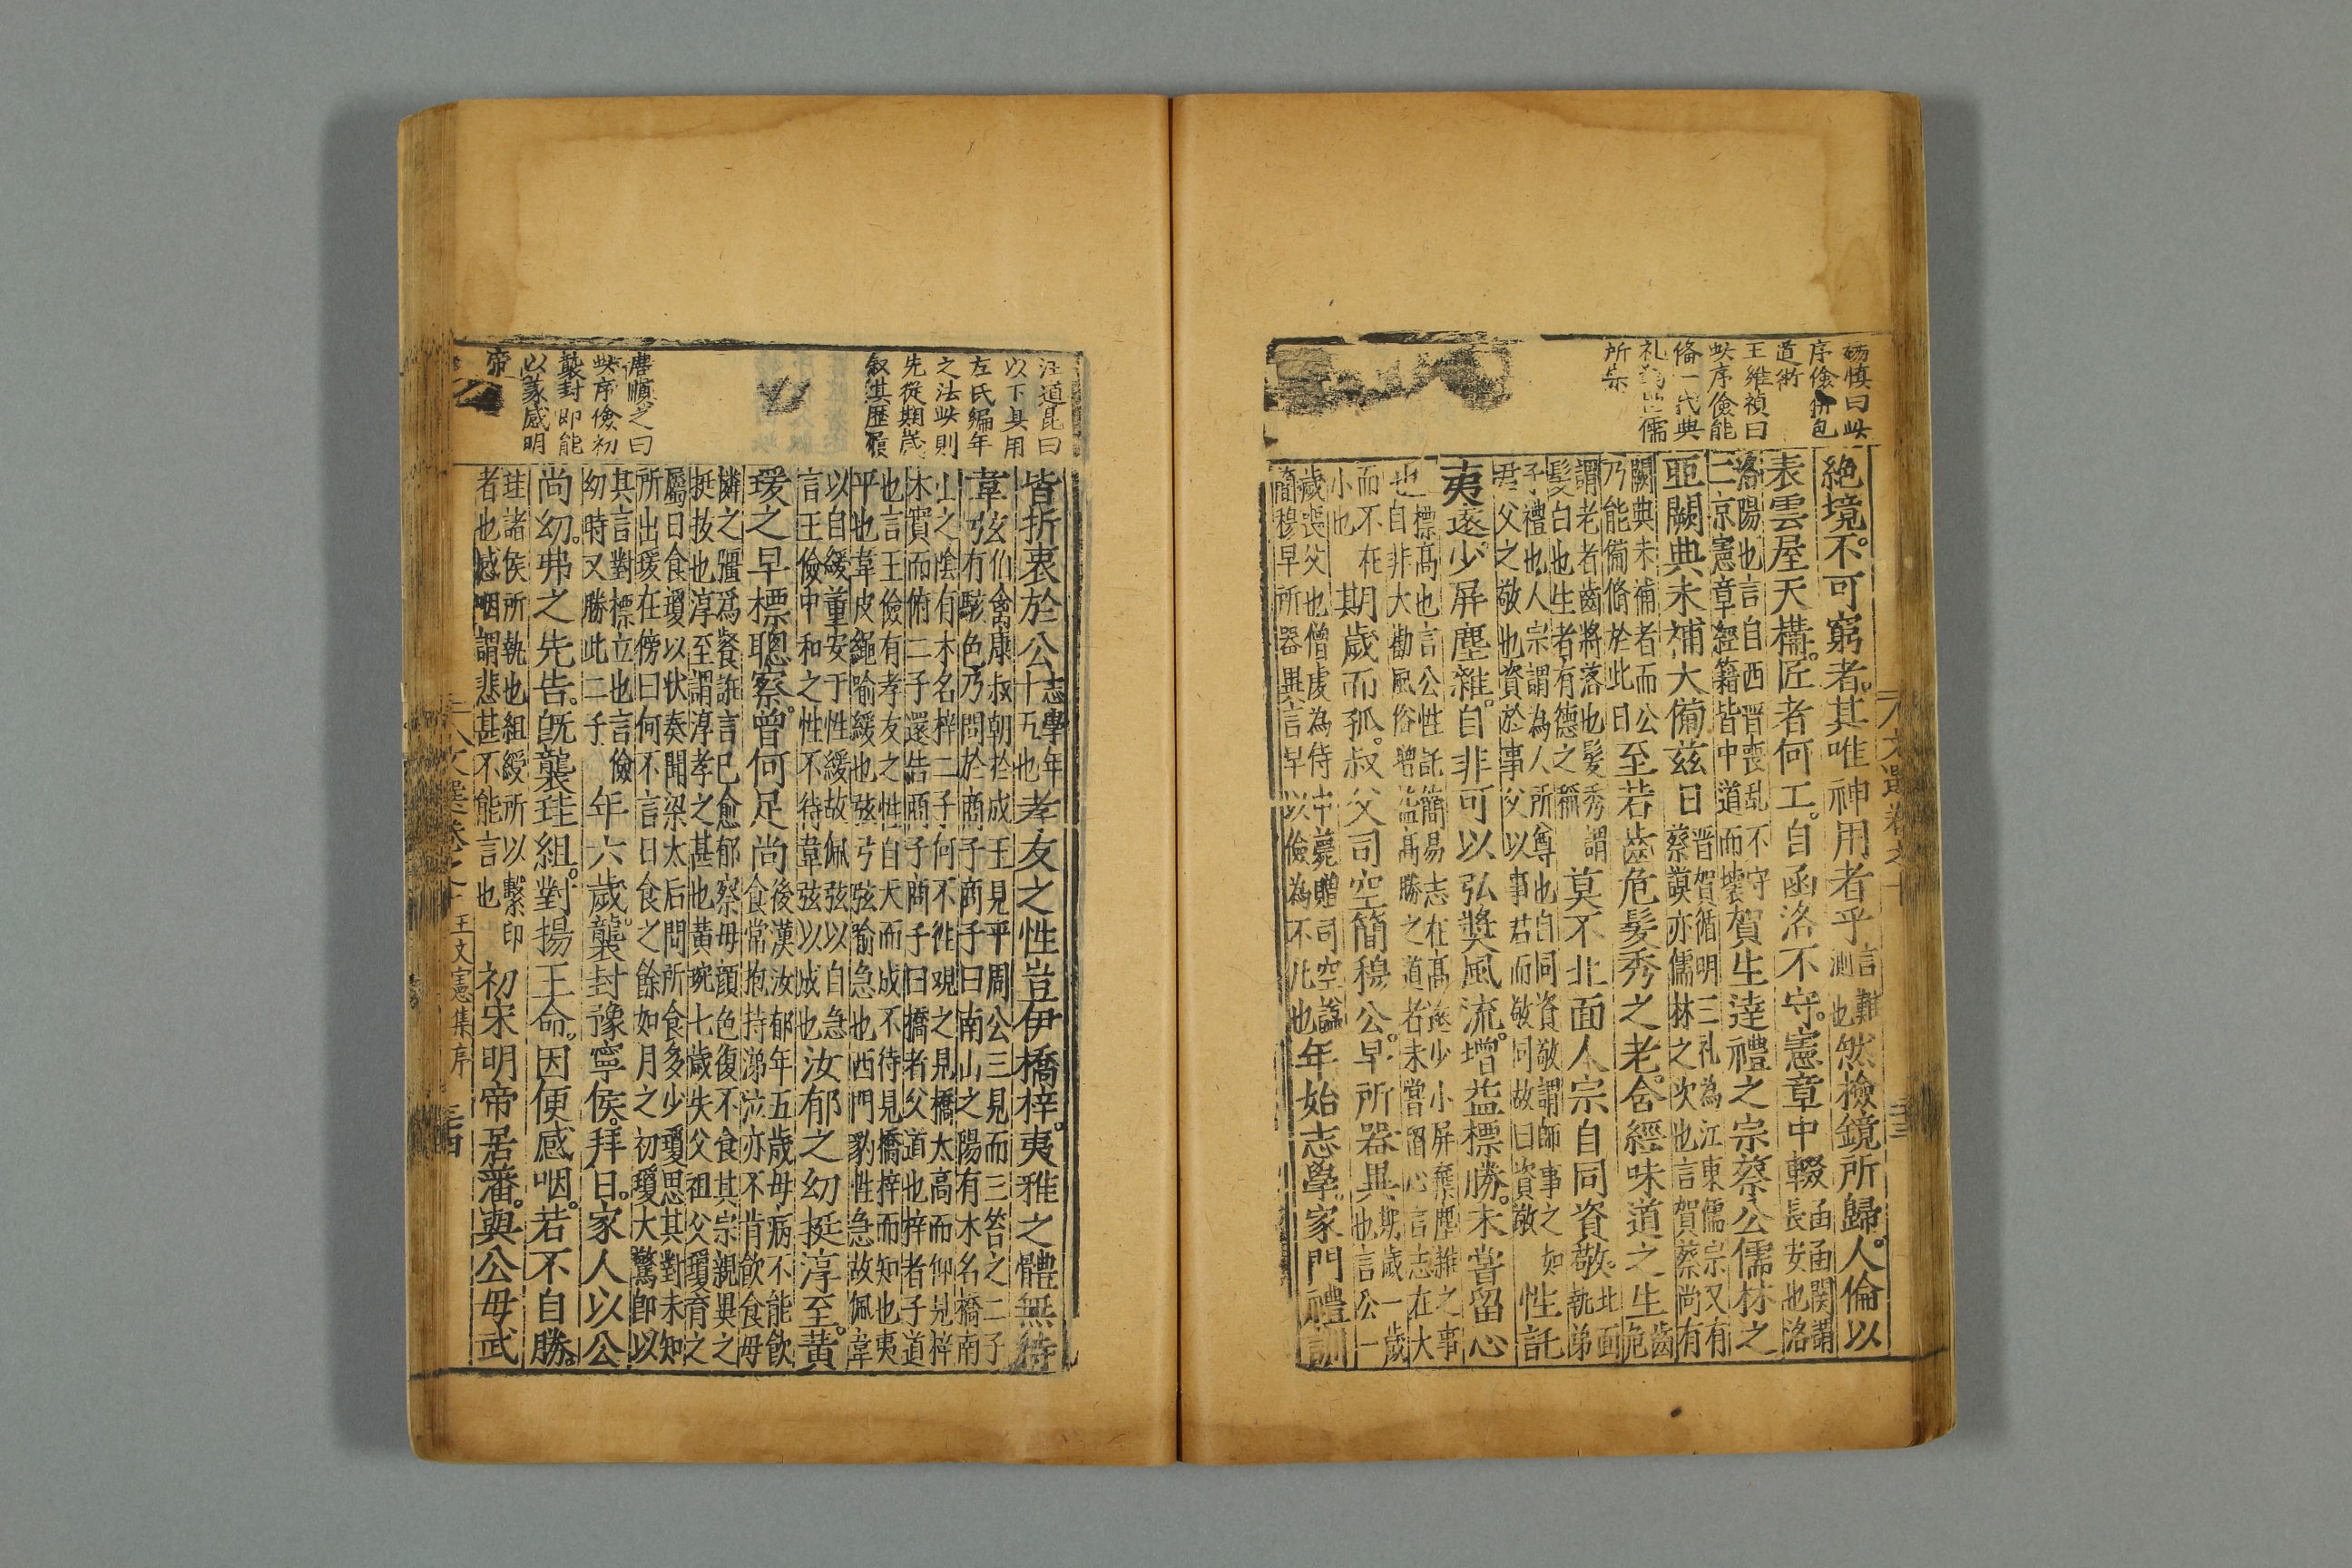 楊慎曰此
序儉併包
道術
王維禎曰
此序儉能
備一代典
礼為世儒
所宗
絶境不可窮者其唯神用者乎言難測也然檢鏡所歸人倫以
表雲屋天構匠者何工自函洛不守憲章中輟函函関謂長安也洛
洛陽也言自西晋喪乱不守二京憲章經籍皆中道而壊賀生逹禮之宗蔡公儒林之
亜闕典未補大備兹日晋賀循明三礼為江東儒宗又有蔡謨亦儒林之次也言賀蔡尚有
闕典未補者而公乃能備脩於此日至若齒危髮秀之老含經味道之生齒危
謂老者齒將落也髮秀謂髮白也生者有德之稱莫不北面人宗自同資敬北面執弟
子禮也人宗謂為人所尊也自同資敬謂師事之如君父之敬也資於事父以事君而敬同故曰資敬性託
夷遠少屏塵雜自非可以弘奬風流增益標勝未甞留心
標高也言公性託簡易志在高遠少小屏棄塵雜之事也自非大勸風俗增益高勝之道者未甞留心言志在大
而不在小也期歲而孤叔父司空簡穆公早所器異期歲一歲也言公一
歲喪父也僧虔為侍中薨贈司空謚簡穆早所器異言早以儉為不凡也年始志學家門禮訓
汪道昆曰
以下具用
左氏編年
之法此則
先從期歲
叙其歷履
唐順之曰
此序儉初
襲封即能
以篆感明
帝
皆折衷於公志學年十五也孝友之性豈伊橋梓夷雅之體無待
韋弦伯禽康叔朝於成王見平周公三見而三笞之二子有駭色乃問於商子商子曰南山之陽有木名橋南
山之陰有木名梓二子何不徃觀之見橋太高而仰見梓木實而俯二子還告商子商子曰橋者父道也梓者子道
也言王儉有孝友之性自天而成不待見橋梓而知也夷平也韋皮繩喻緩也弦弓弦喻急也西門豹性急故佩韋
以自緩董安于性緩故佩弦以自急言王儉中和之性不待韋弦以成也汝郁之幼挺淳至黄
瑗之早標聰察曾何足尚後漢汝郁年五歲母病不能飲食常抱持涕泣亦不肯飲食母
憐之彊為餐誑言已愈郁察母顔色復不食其宗親異之挺抜也淳至謂淳孝之甚也黄琬七歲失父祖父瓊育之
屬日食瓊以状奏聞梁太后問所食多少瓊思其對未知所出瑗在傍曰何不言日食之餘如月之初瓊大驚即以
其言對標立也言儉幼時又勝此二子年六歲襲封豫寧侯拜日家人以公
尚幼弗之先告旣襲珪組對揚王命因便感咽若不自勝
珪諸侯所執也組綬所以繫印者也感咽謂悲甚不能言也初宋明帝居蕃與公母武
文選卷之十
王文憲集序